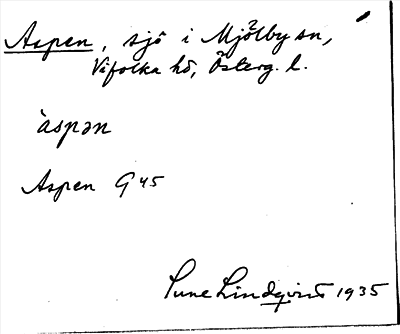 Aspen, sjö i Mjölby sn,
Vifolka hd, Österg. l.
àspən
Aspen G 45
Sune Lindqvist 1935